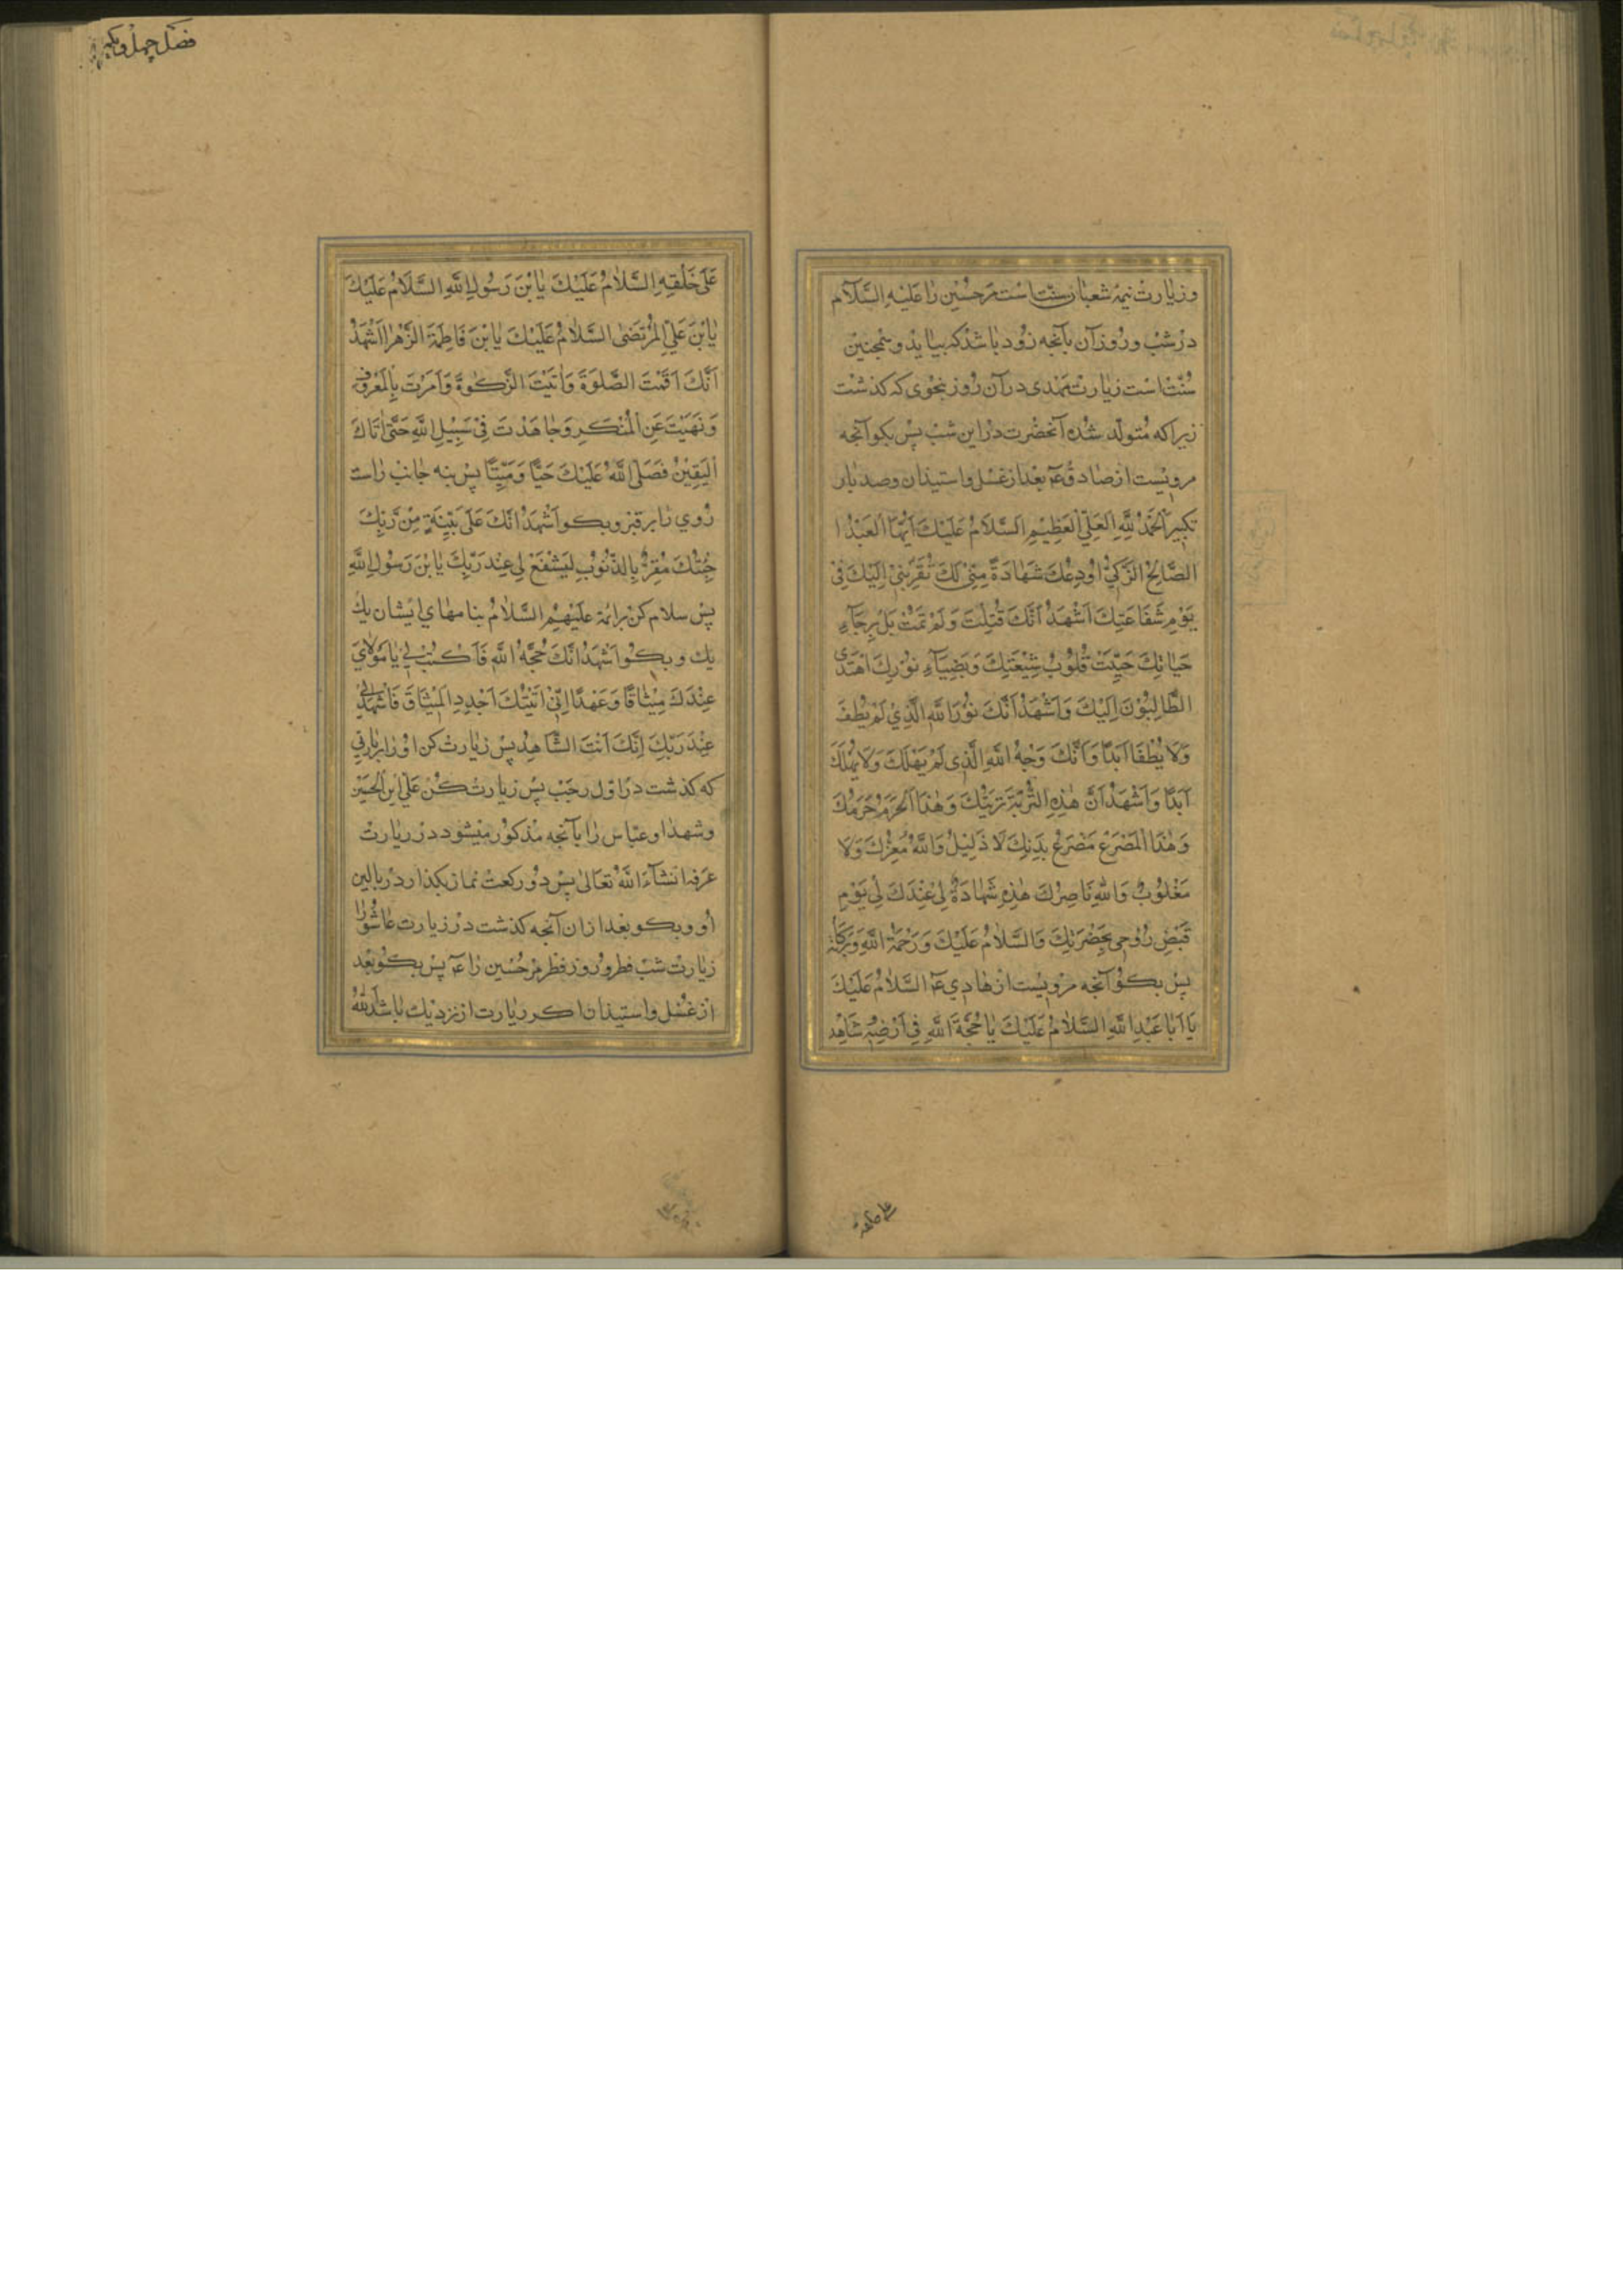 وزیارت نیمهٔ شعبان سنّت است مرحسین را علیه السّلام
در شب و روز آن بآنچه زود باشد که بیاید و همچنین
سُنّت است زیارت مهدی در آن روز بنحوی که کذشت
زیرا که متولّد شده آنحضرت در این شب پس بکو آنچه
مرویست از صادق ع بعد از غسل و استیذان و صد بار
تکبیر اَلحَمدُ لِلّهِ العَلِیِّ العَظِیمِ اَلسَّلامُ عَلَیْكَ اَیُّهَا العَبْدُ ا
الصّالِحُ الزَّکِیُّ اُودِعُكَ شَهادَةً مِنّی لَكَ تُقَرِّبُنی اِلَیْكَ فی
یَوْمِ شَفاعَتِكَ اَشْهَدُ اَنَّكَ قُتِلْتَ وَلَمْ تَمُتْ بَلْ بِرَجآءِ
حَیاتِكَ حَیِیَتْ قُلُوبُ شِیعَتِكَ وَبِضِیآءِ نُورِكَ اهْتَدَی
الطّالِبُونَ اِلَیْكَ وَاَشْهَدُ اَنَّكَ نُورُ اللّهِ الَّذی لَمْ یُطْفَ
وَلا یُطْفَا اَبَدًا وَاَنَّكَ وَجْهُ اللّهِ الَّذی لَمْ یَهْلَكْ وَلا یُهْلَكُ
اَبَدًا وَاَشْهَدُ اَنَّ هٰذِهِ التُّرْبَةَ تُرْبَتُكَ وَهٰذَا الحَرَمُ حَرَمُكَ
وَهٰذَا المَصْرَعُ مَصْرَعُ بَدَنِكَ لا ذَلیلُ وَاللّهُ مُعِزُّكَ وَلا
مَغْلُوبُ وَاللّهُ ناصِرُكَ هٰذِهِ شَهادَةٌ لی عِنْدَكَ لی یَوْمِ
قَبْضِ رُوحی بِحَضْرَتِكَ وَالسَّلامُ عَلَیْكَ وَرَحْمَةُ اللّهِ وَبَرَکاتُهُ
پس بکو آنچه مرویست از هادی ع السَّلامُ عَلَیْكَ
یا اَبا عَبْدِ اللّهِ السَّلامُ عَلَیْكَ یا حُجَّةَ اللّهِ فی اَرْضِهِ شاهِد
فصل چهل و یکم
عَلی خَلْقِهِ السَّلامُ عَلَیْكَ یا بْنَ رَسُولِ اللّهِ السَّلامُ عَلَیْكَ
یا بْنَ عَلِیِّ المُرْتَضی السَّلامُ عَلَیْكَ یا بْنَ فاطِمَةَ الزَّهْرا اَشْهَدُ
اَنَّكَ اَقَمْتَ الصَّلوةَ وَاتَیْتَ الزَّکوةَ وَاَمَرْتَ بِالمَعْرُوفِ
وَنَهَیْتَ عَنِ المُنْکَرِ وَجاهَدْتَ فی سَبیلِ اللّهِ حَتّی اَتاكَ
الیَقینُ فَصَلَّی اللّهُ عَلَیْكَ حَیًّا وَمَیِّتًا پس بنه جانب راست
روی را بر قبر و بکو اَشْهَدُ اَنَّكَ عَلی بَیِّنَةٍ مِنْ رَبِّكَ
جِئْتُكَ مُقِرًّا بِالذُّنُوبِ لِیَشْفَعَ لی عِنْدَ رَبِّكَ یا بْنَ رَسُولِ اللّهِ
پس سلام کن بر ائمّه علیهم السّلام بنامهای ایشان یك
یك و بکو اَشْهَدُ اَنَّكَ حُجَّةُ اللّهِ فَاکْتُبْ لی یا مَوْلایَ
عِنْدَكَ مِیثاقًا وَعَهْدًا اِنّی اَتَیْتُكَ اَجْدِدِ المِیثاقَ فَاشْهَدْ لی
عِنْدَ رَبِّكَ اِنَّكَ اَنْتَ الشّاهِدُ پس زیارت کن او را بزیارتی
که کذشت در اوّل رجب پس زیارت کن علی ابن الحسین
و شهدا و عبّاس را بآنچه مذکور میشود در زیارت
عرفه انشآء اللّه تعالی پس دو رکعت نماز بکذارد در بالین
او و بکو بعد از ان آنچه کذشت در زیارت عاشورا
زیارت شب فطر و روز فطر مر حسین را ع پس بکو بعد
از غسل و استیذان اکر زیارت از نزدیك باشد اَللّهُ